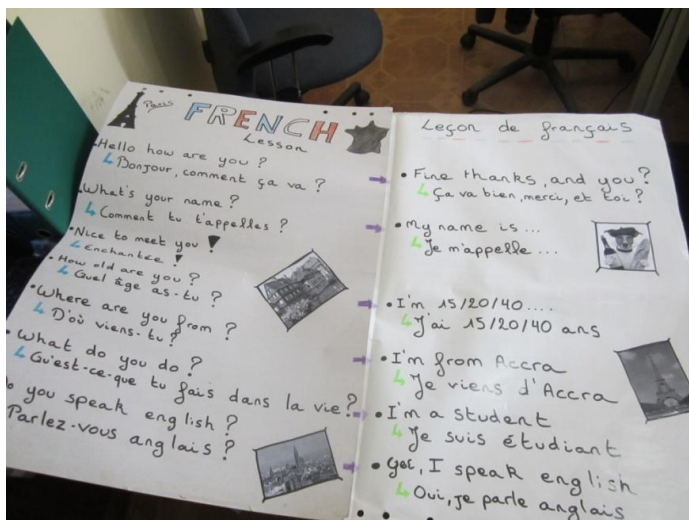 Paris
FRENCH
Lesson
•Hello how are you ?
Bonjour, comment ça va ?
•What's your name ?
Comment tu t'appelles ?
•Nice to meet you !
Enchantée !
•How old are you ?
Quel âge as-tu ?
•Where are you from ?
D'où viens-tu ?
•What do you do ?
Qu'est-ce-que tu fais dans la vie ?
you speak english ?
Parlez-vous anglais ?
Leçon de français
•Fine thanks, and you ?
Ça va bien, merci, et toi ?
•My name is ...
Je m'appelle ...
•I'm 15/20/40 ....
J'ai 15/20/40 ans
•I'm from Accra
Je viens d'Accra
•I'm a student
Je suis étudiant
•Yes, I speak english
Oui, je parle anglais